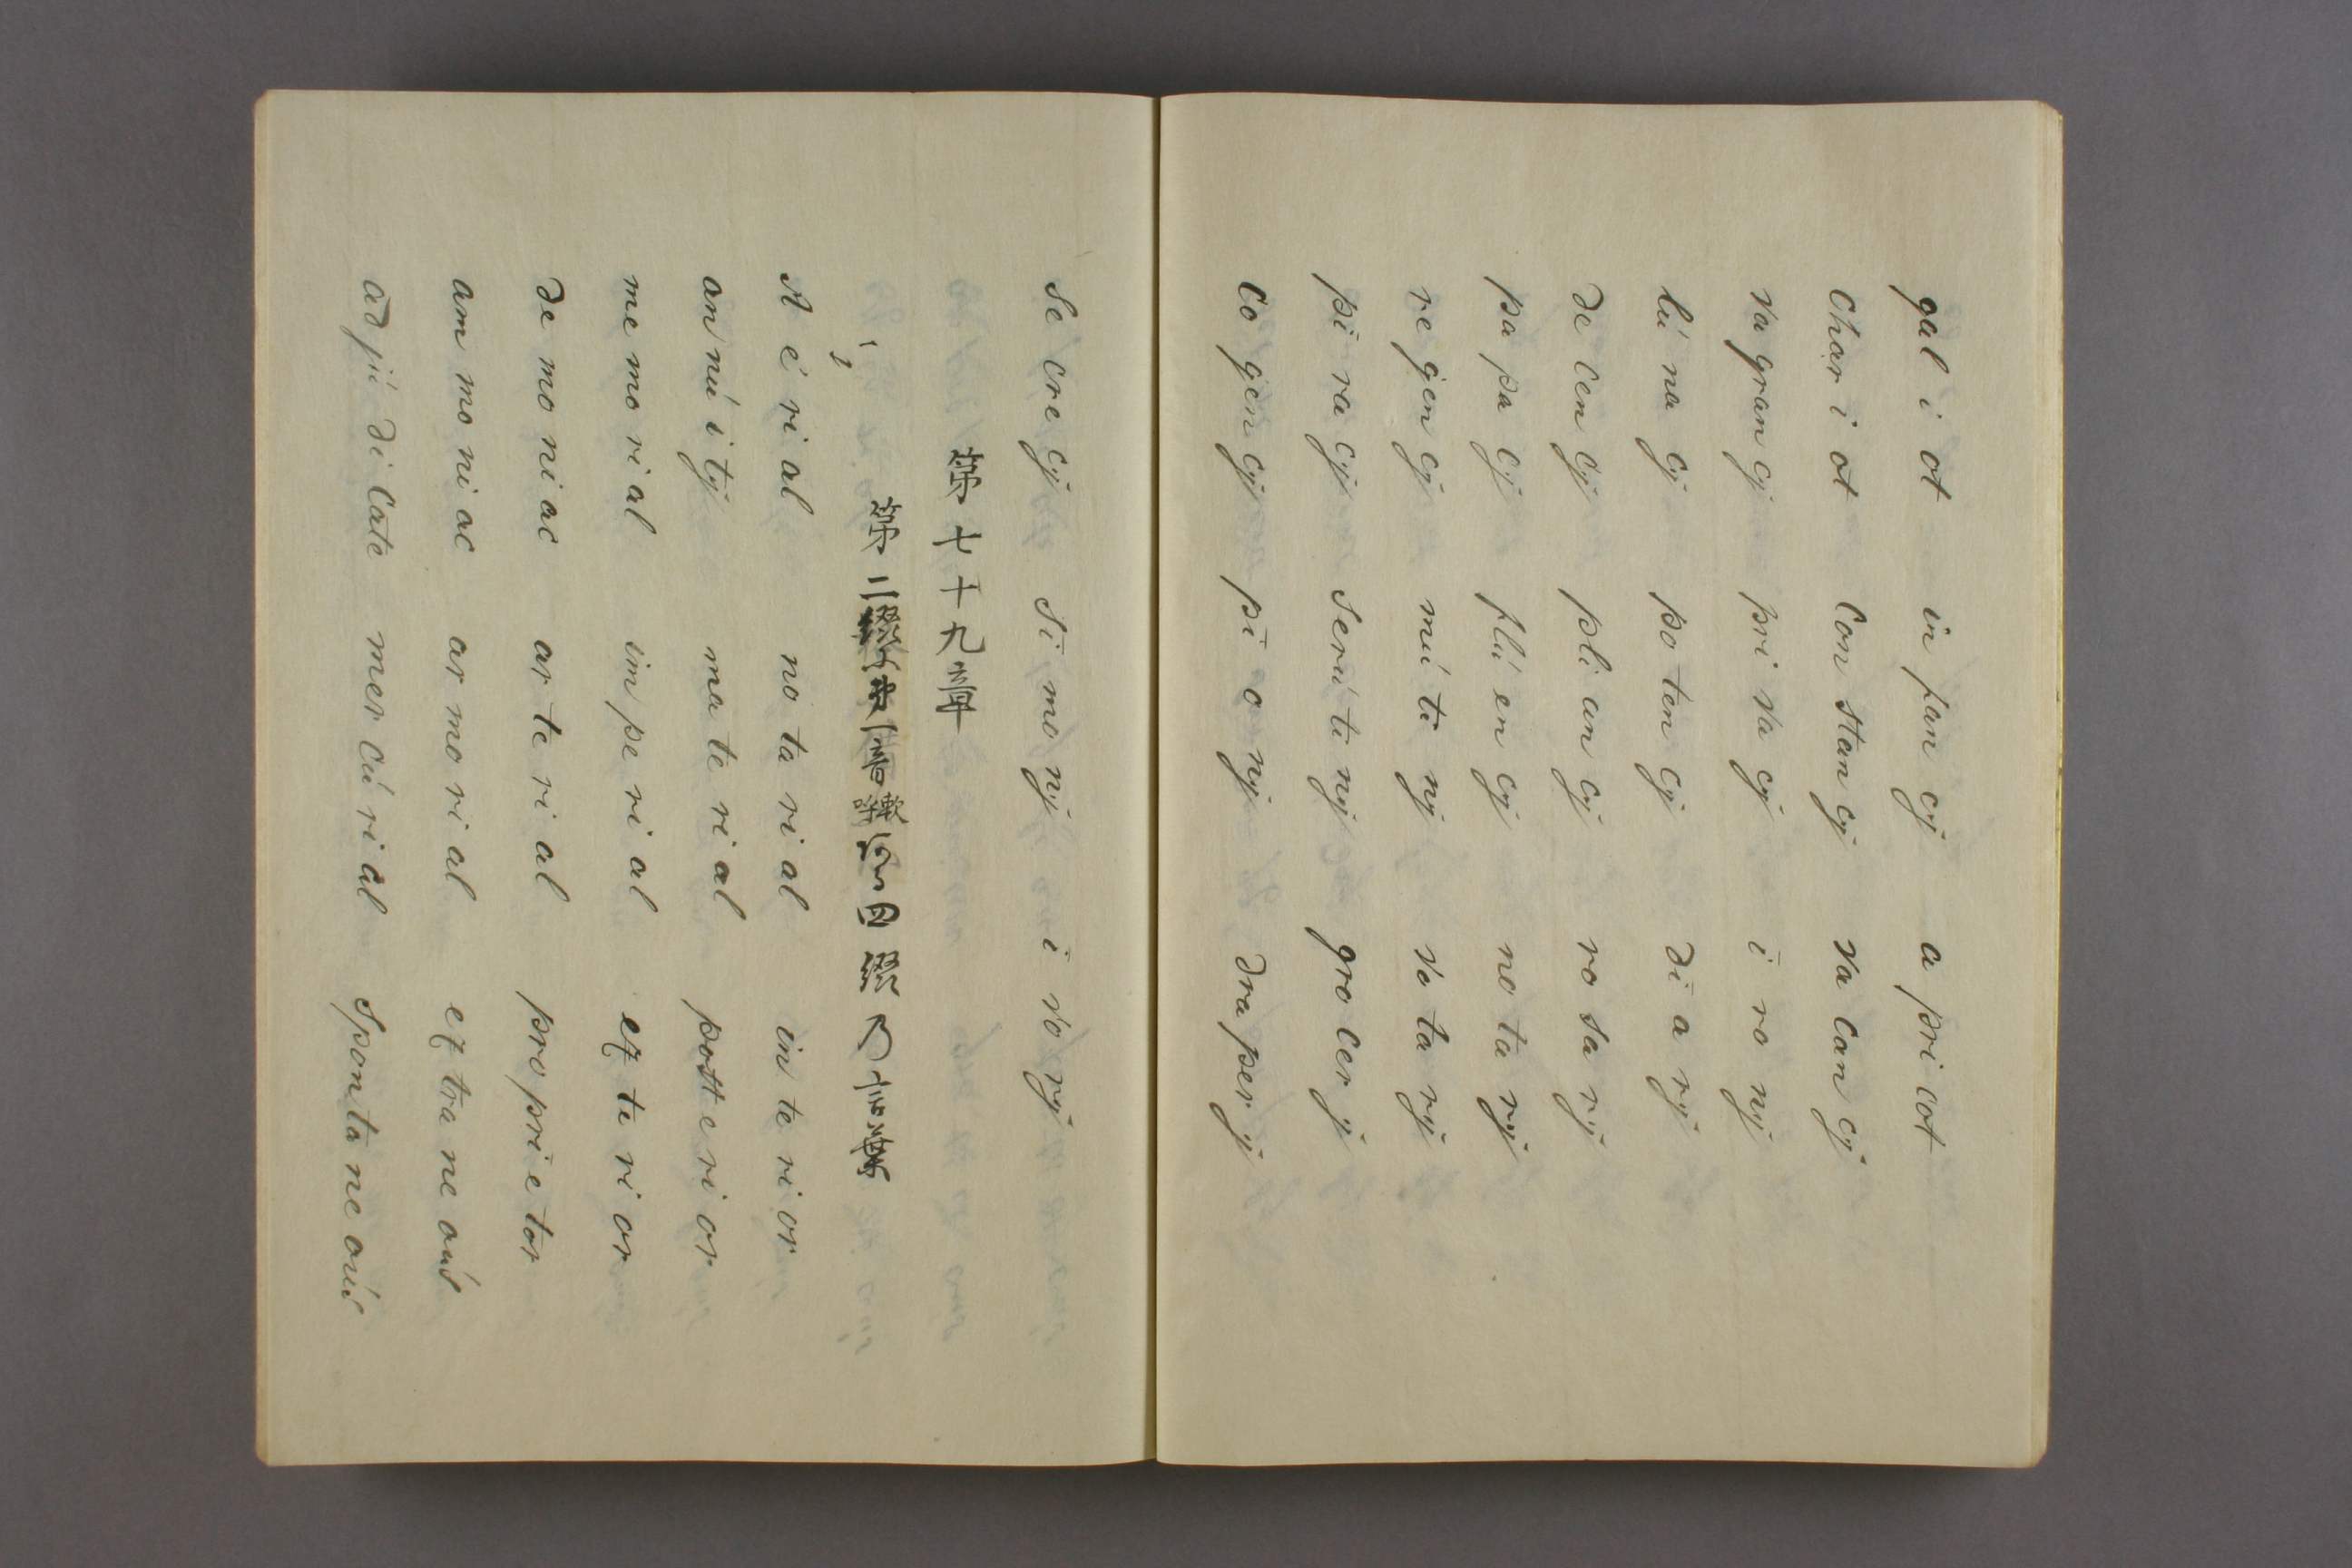 gal i ot in fan cÿ a pri cot
Char i ot Con stan cÿ va can cÿ
va gran cÿ pri va cÿ i ro nÿ
lú na cÿ po ten cÿ di a rÿ
de cen cÿ pli an cÿ ro sa rÿ
pa pa cÿ flú en cÿ no ta rÿ
re gen cÿ mú ti nÿ vo ta rÿ
pi ra cÿ Scrú ti nÿ gro cer ÿ
co gen cÿ pi o nÿ dra per ÿ
Se cre cÿ Si mo nÿ i vo rÿ
第七十九章
第二綴 第一音 四綴乃言葉
A é ri al no ta ri al in te ri or
an nú i tÿ ma te ri al post e ri or
me mo ri al im pe ri al ex te ri or
de mo ni ac ar te ri al pro pri e tor
am mo ni ac ar mo ri al ex tra ne oús
ad jú di Cate mer cú ri al Spon ta ne oús